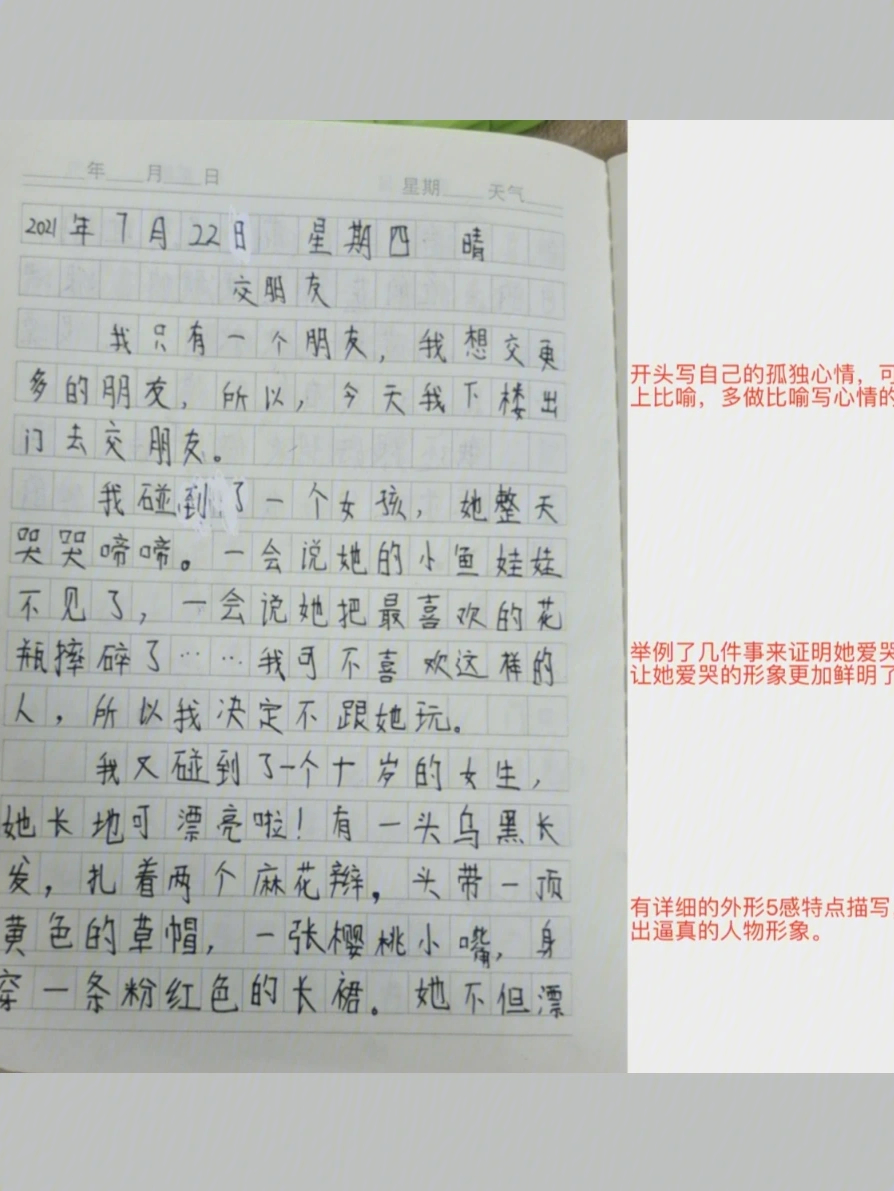 年 月 日 星期 天气
2021年7月22日 星期四 晴
交朋友
我只有一个朋友，我想交更
多的朋友，所以，今天我下楼出
门去交朋友。
我碰到了一个女孩，她整天
哭哭啼啼。一会说她的小鱼娃娃
不见了，一会说她把最喜欢的花
瓶摔碎了……我可不喜欢这样的
人，所以我决定不跟她玩。
我又碰到了一个十岁的女生，
她长地可漂亮啦！有一头乌黑长
发，扎着两个麻花辫，头带一顶
黄色的草帽，一张樱桃小嘴，身
穿一条粉红色的长裙。她不但漂
开头写自己的孤独心情，可
上比喻，多做比喻写心情的
举例了几件事来证明她爱哭
让她爱哭的形象更加鲜明了
有详细的外形5感特点描写
出逼真的人物形象。